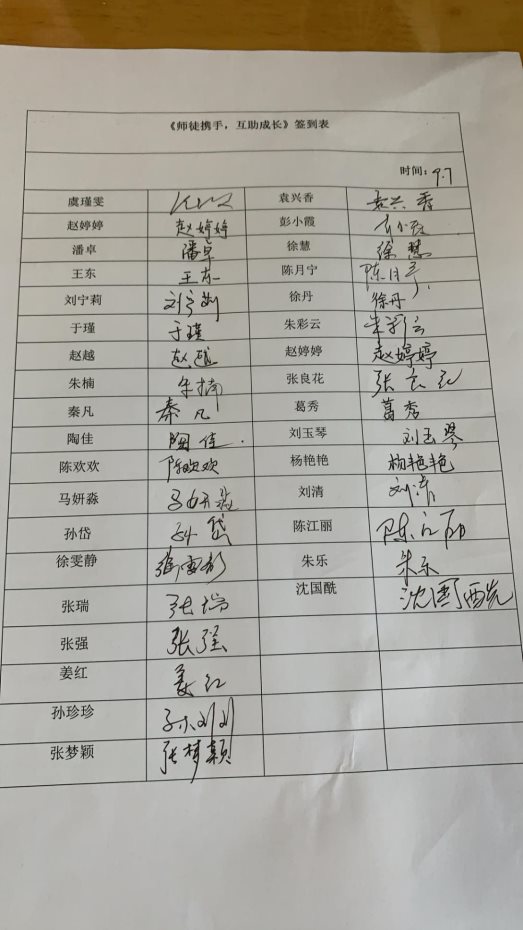 《师徒携手，互助成长》签到表
时间：9.7
虞瑾雯 袁兴香 袁兴香
赵婷婷 赵婷婷 彭小霞
潘卓 潘卓 徐慧 徐慧
王东 王东 陈月宁 陈月宁
刘宁莉 刘宁莉 徐丹 徐丹
于瑾 于瑾 朱彩云 朱彩云
赵越 赵越 赵婷婷 赵婷婷
朱楠 朱楠 张良花 张良花
秦凡 秦凡 葛秀 葛秀
陶佳 陶佳 刘玉琴 刘玉琴
陈欢欢 陈欢欢 杨艳艳 杨艳艳
马妍淼 马妍淼 刘清 刘清
孙岱 孙岱 陈江丽 陈江丽
徐雯静 朱乐 朱乐
张瑞 张瑞 沈国酰 沈国酰
张强 张强
姜红 姜红
孙珍珍 孙珍珍
张梦颖 张梦颖